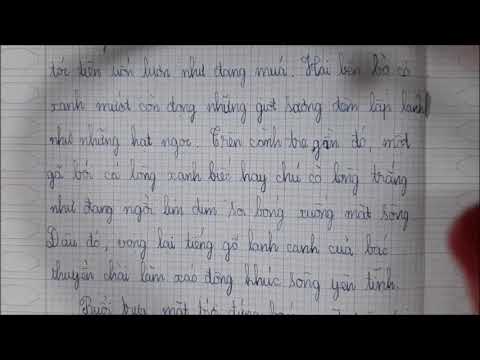 tóc liễn uốn lượn như đang múa. Hai bên bờ cỏ
xanh mướt còn đọng những giọt sương đêm lấp lánh
như những hạt ngọc. Trên cành tre gần đó, một
gã bói cá lông xanh biếc hay chú cò lông trắng
như đang ngồi lim dim soi bóng xuống mặt sông
Đâu đó, vọng lại tiếng gõ lanh canh của bác
thuyền chài làm xao động khúc sông yên tĩnh.
Buổi trưa, mặt trời đứng